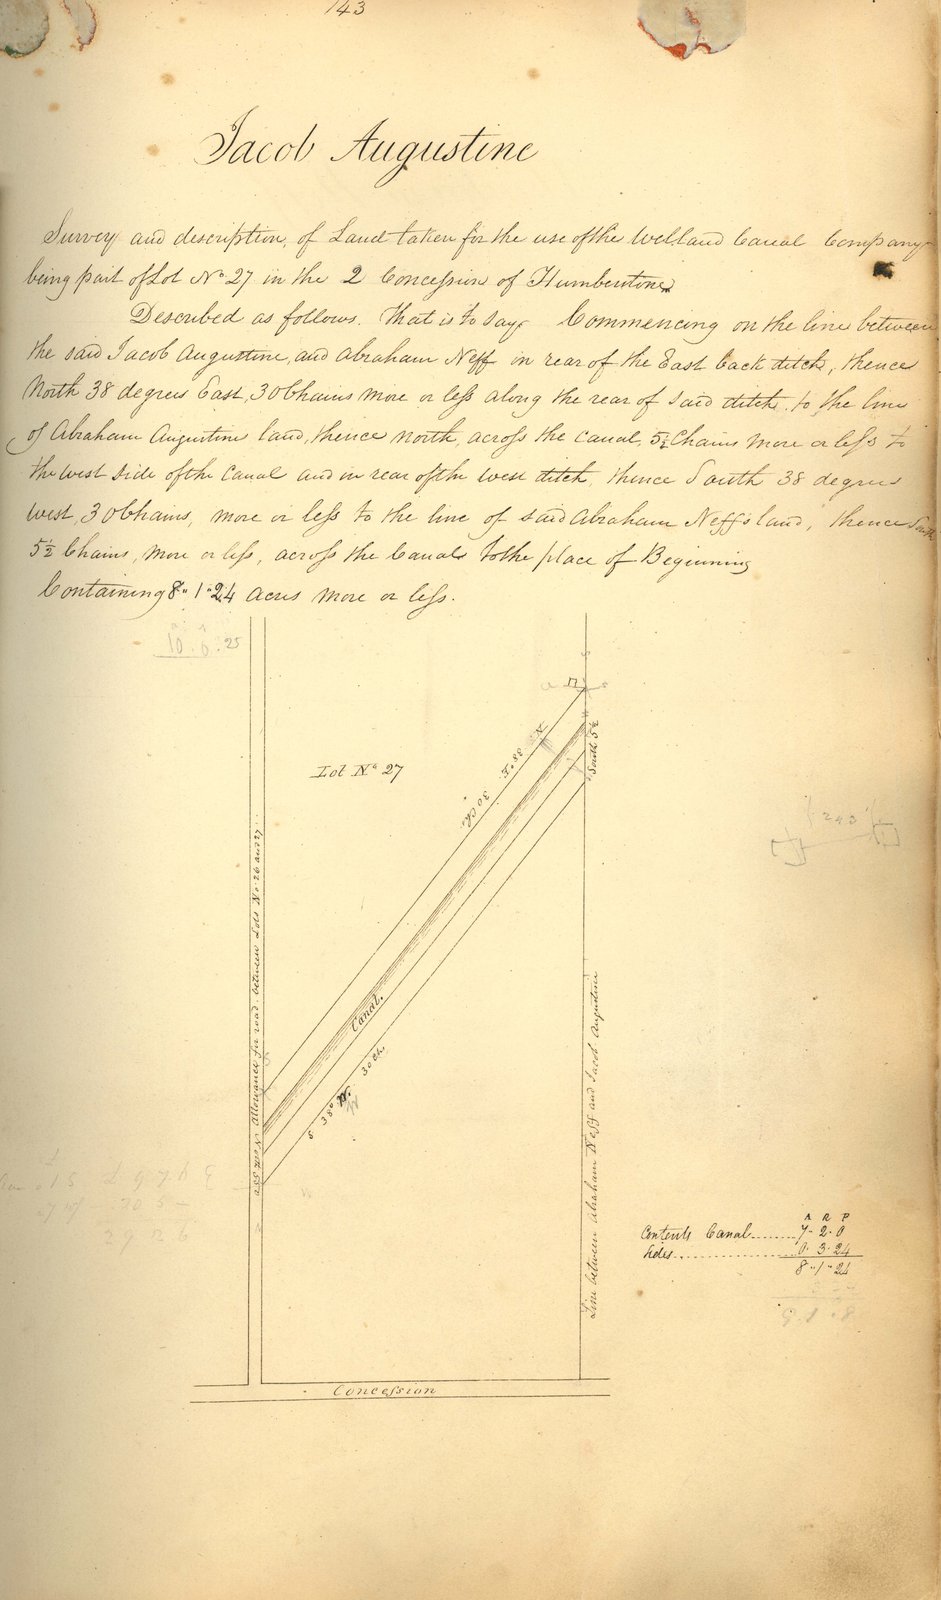 143
Jacob Augustine
Survey and description, of Land taken for the use of the Welland Canal Company
being part of Lot No 27 in the 2 Concession of Humberstone
Described as follows. That is to say Commencing on the line between
the said Jacob Augustine, and Abraham Neff in rear of the East back ditch, thence
North 38 degrees East, 30 Chains more or less along the rear of said ditch, to the line
of Abraham Augustine land, thence north, across the canal, 5½ Chains more or less to
the west side of the Canal and in rear of the west ditch, thence South 38 degrees
west, 30 Chains, more or less to the line of said Abraham Neff's land, thence South
5½ Chains, more or less, across the Canal to the place of Beginning
Containing 8"1"24 acres more or less.
10.0.25
Lot No 27
N. 38° E. 30 Ch.
South 5½
Canal.
S 38° W. 30 Ch.
Allowance for road between Lots No 26 and 27
Line between Abraham Neff and Jacob Augustine
A R P
Contents Canal......7-2.0
Sides.................0.3.24
8"1"24
Concession